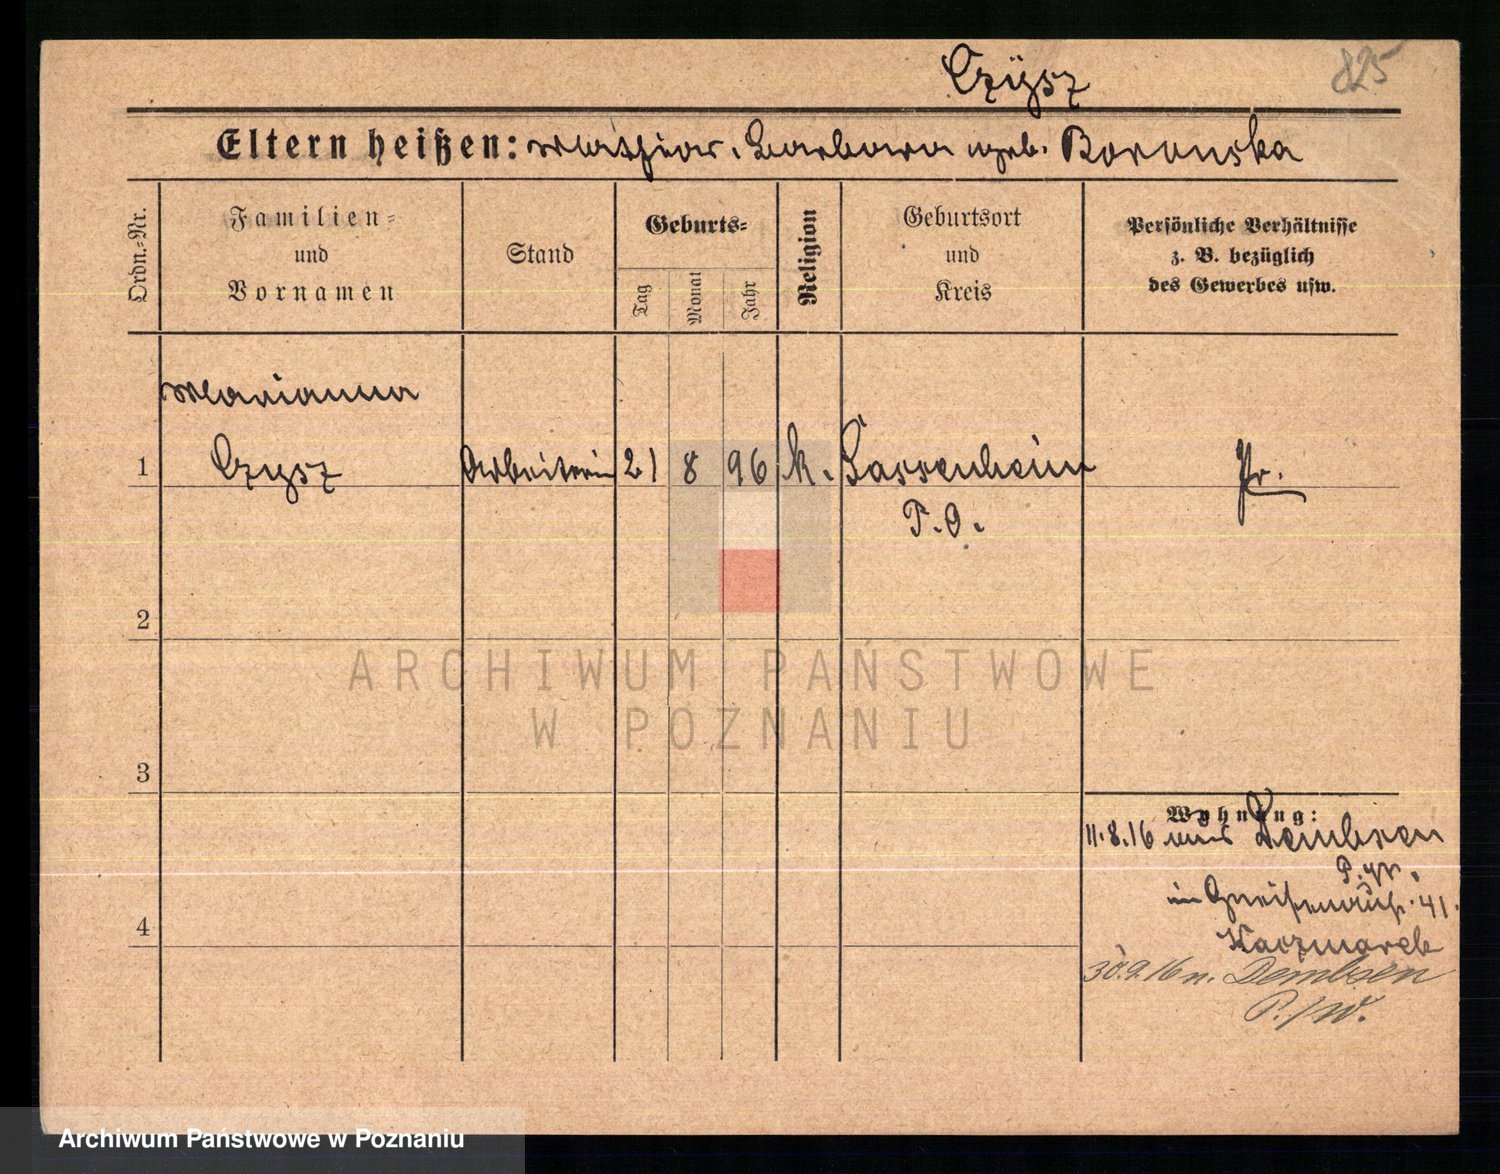 Czÿsz 825
Eltern heißen: Mathias, Barbara geb. Boronska
Ordn.=Nr.
Familien=
und
Vornamen
Stand
Geburts=
Tag
Monat
Jahr
Religion
Geburtsort
und
Kreis
Persönliche Verhältnisse
z. B. bezüglich
des Gewerbes usw.
Marianna
1 Czysz Arbeiterin 21 8 96 k. Sassenheim Pr.
P. O.
2
ARCHIWUM PAŃSTWOWE
W POZNANIU
3
Wohnung:
11.8.16 aus Dembsen
P. W.
in Gneisenaustr. 41.
4
Kaczmarek
30.9.16 n. Dembsen
P./W.
Archiwum Państwowe w Poznaniu